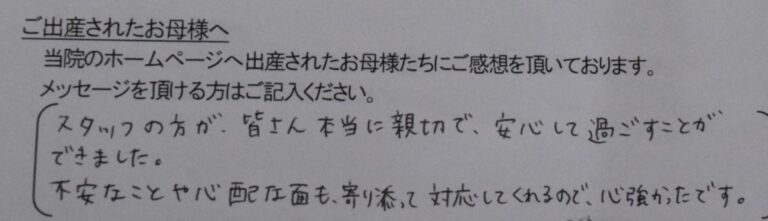 ご出産されたお母様へ
当院のホームページへ出産されたお母様たちにご感想を頂いております。
メッセージを頂ける方はご記入ください。
スタッフの方が、皆さん本当に親切で、安心して過ごすことが
できました。
不安なことや心配な面も、寄り添って対応してくれるので、心強かったです。